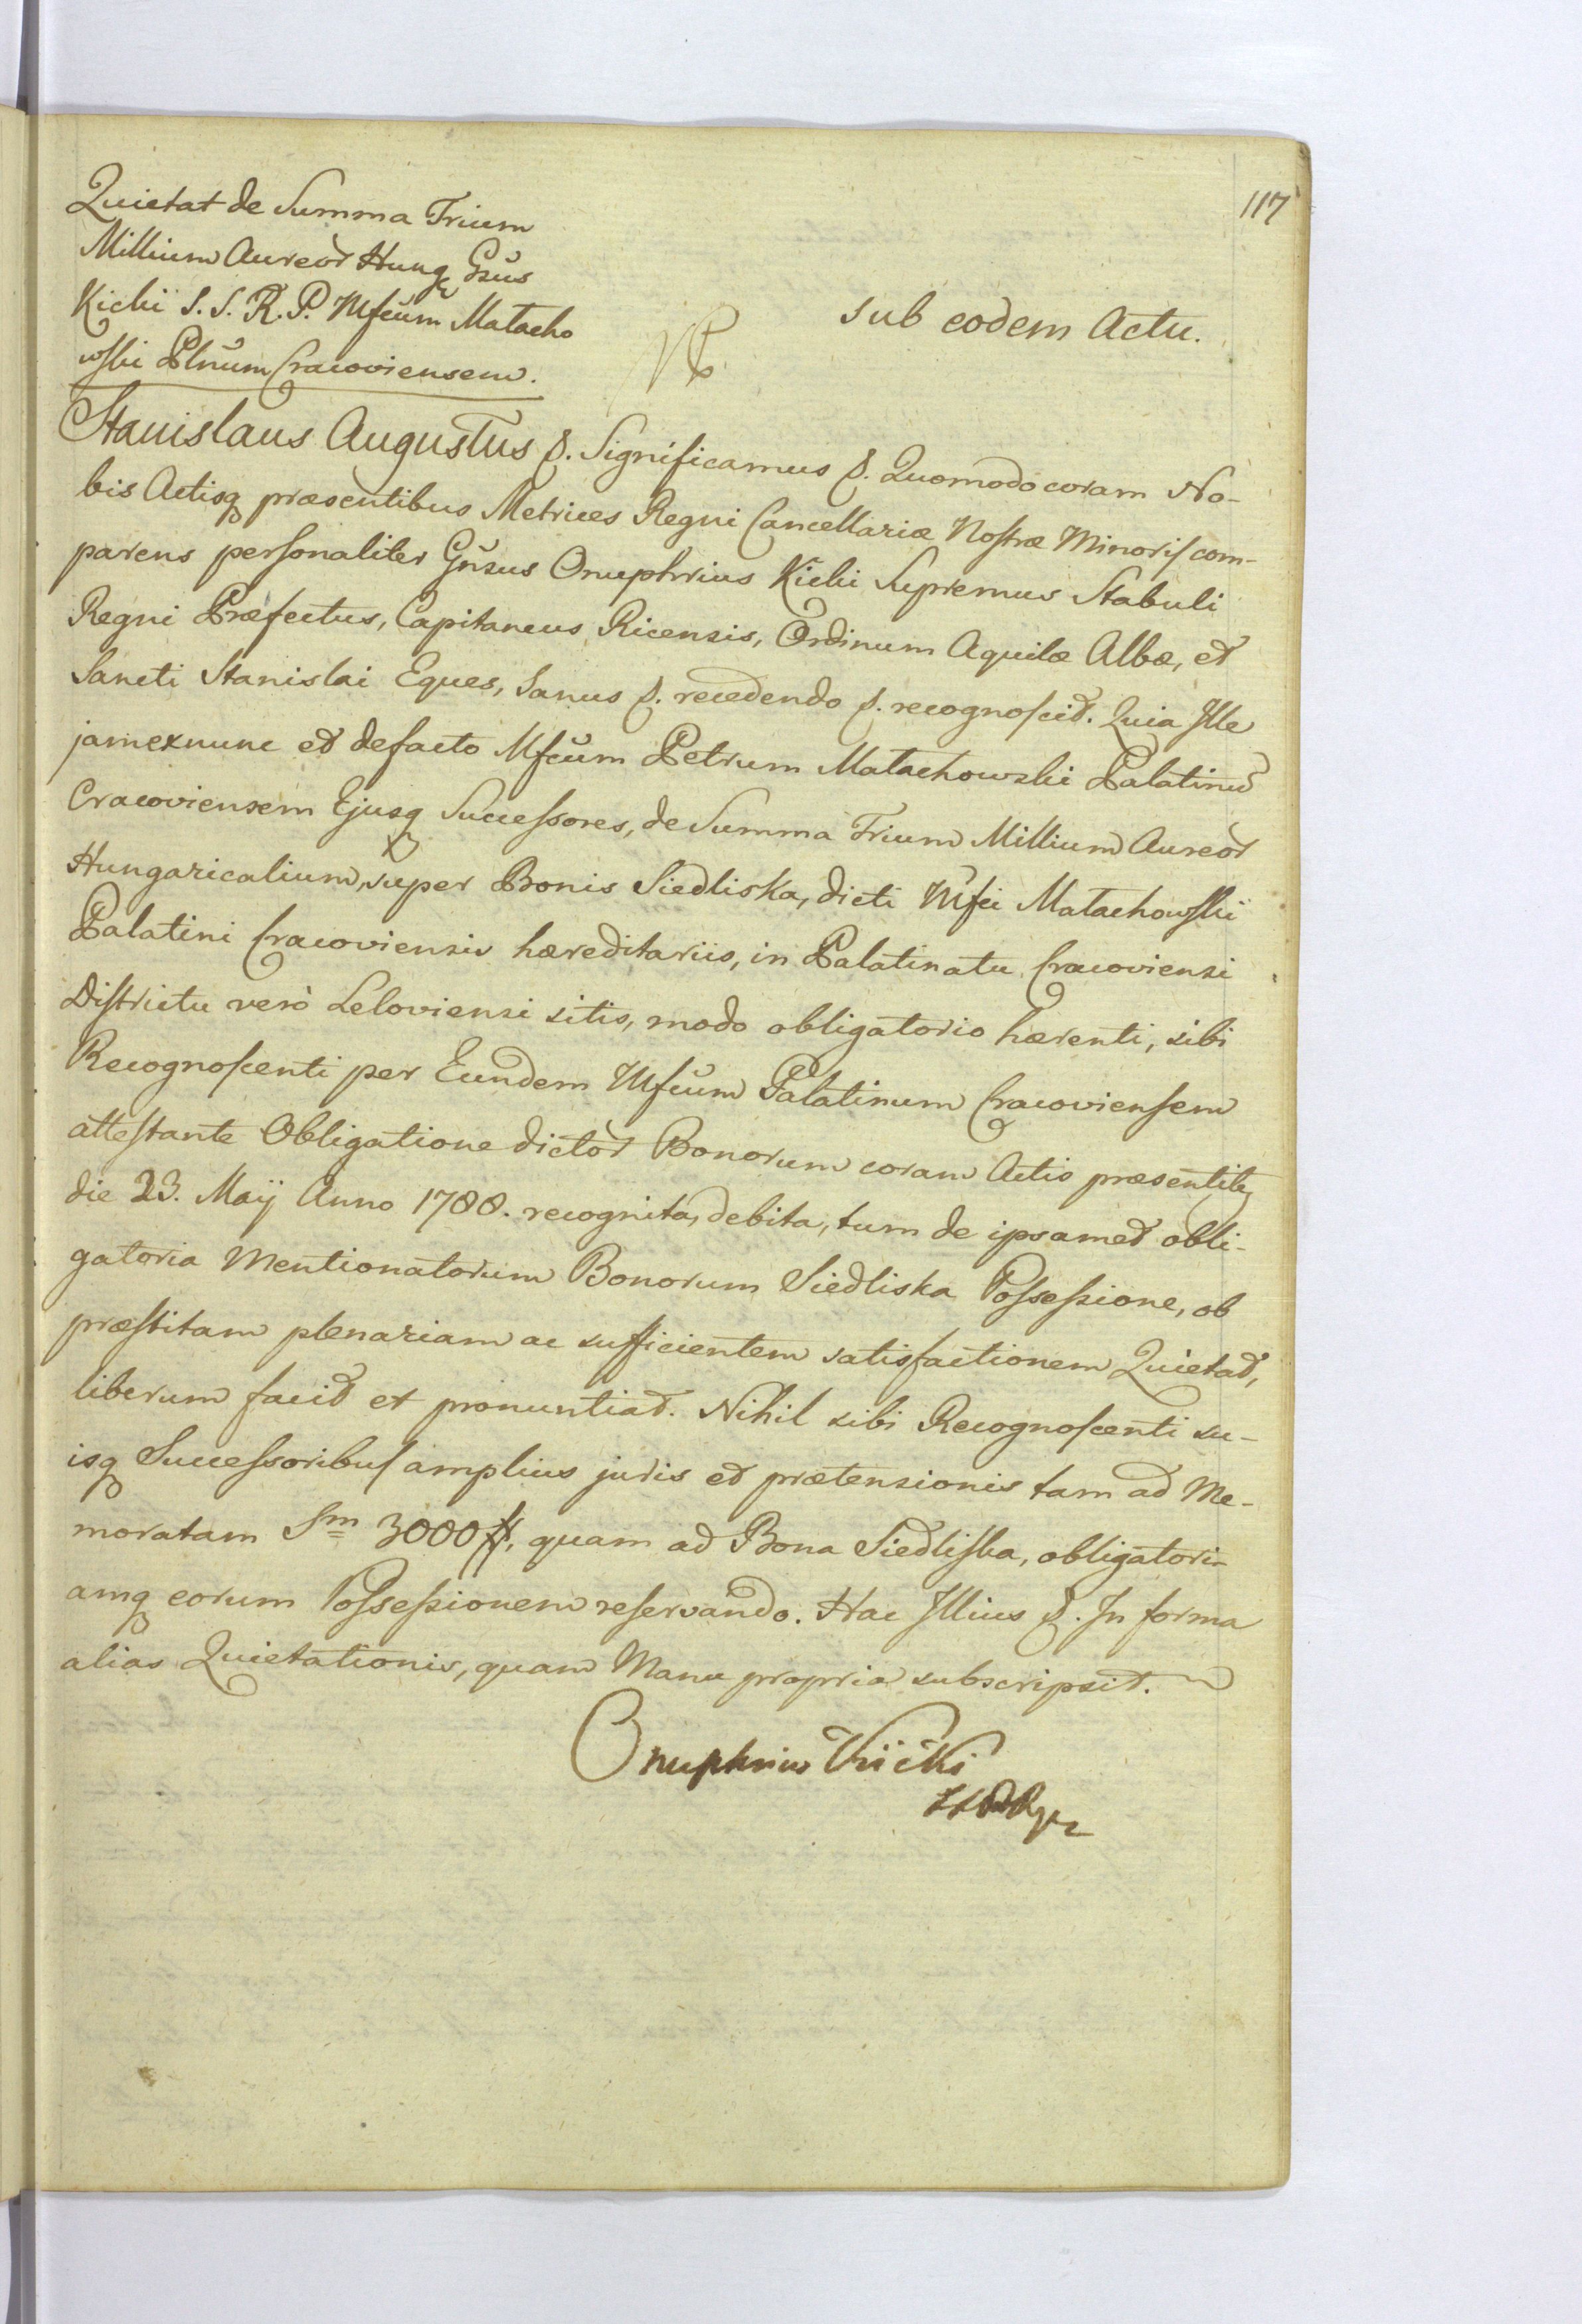 117
Quietat de Summa Trium
Millium Aureor̃ Hung. Gsūs
Kicki S. S. R. P. Mfcūm Małacho
wski Plnūm Cracoviensem.
sub eodem Actu.
Stanislaus Augustus &. Significamus &. Quomodo coram No-
bis Actisq præsentibus Metrices Regni Cancellariæ Nostræ Minoris com-
parens personaliter Gn̄sus Onuphrius Kicki Supremus Stabuli
Regni Præfectus, Capitaneus Ricensis, Ordinum Aquilæ Albæ, et
Sancti Stanislai Eques, Sanus &. recedendo &. recognoscit. Quia Ille
jamexnunc et defacto Mfcūm Petrum Małachowski Palatinū
Cracoviensem Ejusq Successores, de Summa Trium Millium Aureor̃
Hungaricalium, super Bonis Siedliska, dicti Mfci Małachowskii
Palatini Cracoviensis hæreditariis, in Palatinatu Cracoviensi
Districtu verò Leloviensi sitis, modo obligatorio hærenti, sibi
Recognoscenti per Eundem Mfcūm Palatinum Cracoviensem
attestante Obligatione dictor̃ Bonorum coram Actis præsentibq
die 23. Maij Anno 1788. recognita, debita, tum de ipsamet obli-
gatoria Mentionatorum Bonorum Siedliska Possessione, ob
præstitam plenariam ac sufficientem satisfactionem Quietat,
liberum facit et pronuntiat. Nihil sibi Recognoscenti su-
isq Successoribus amplius juris et prætensionis tam ad Me-
moratam Sm 3000 #, quam ad Bona Siedliska, obligatori-
amq eorum Possessionem reservando. Hac Illius &. In forma
alias Quietationis, quam Manu propria subscripsit.
Onuphrius Kicki